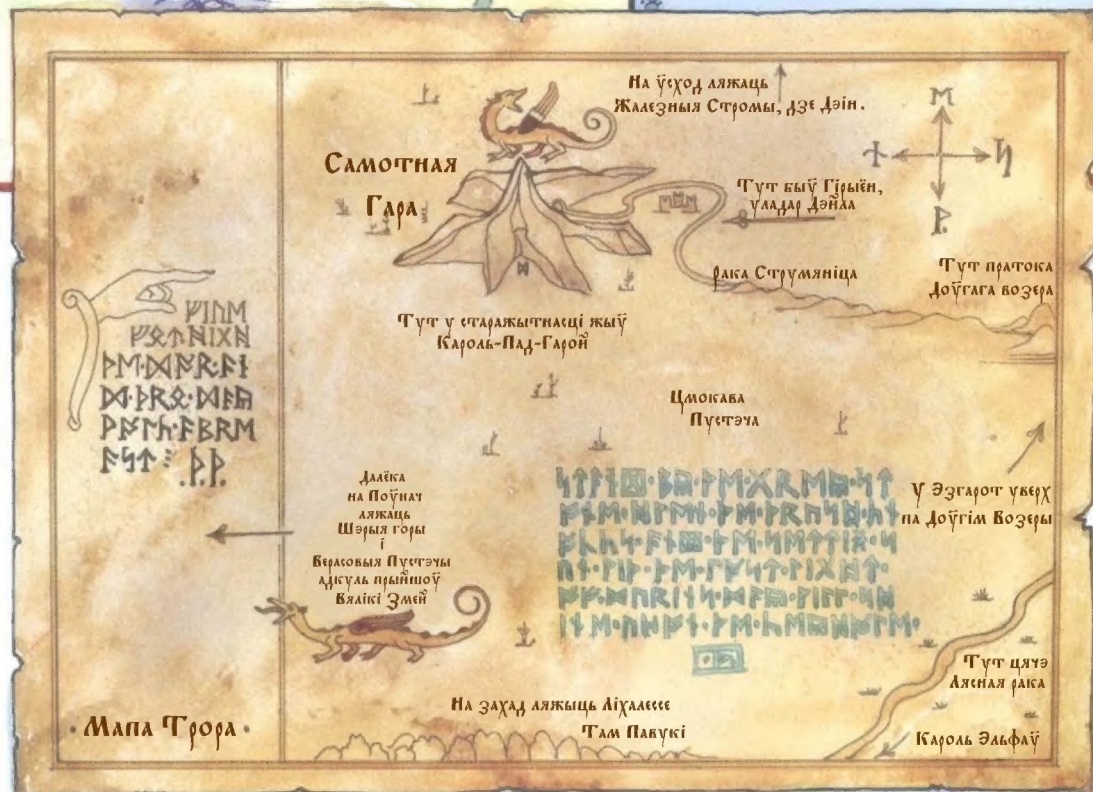 На ўсход ляжаць
Жалезныя Стромы, дзе Дэін.
ᛖ
ᚾ
ᛋ
ᚹ
Самотная
Гара
Тут быў Гірыён,
уладар Дэйла
рака Струмяніца
Тут пратока
Доўгага возера
Тут у старажытнасці жыў
Кароль-Пад-Гарой
ᚠᛁᚢᛖ
ᚠᛟᛏ᛫ᚻᛁᚷᚻ
ᚦᛖ᛫ᛞᚩᚱ᛫ᚪᚾ
ᛞ᛫ᚦᚱᛟ᛫ᛗᚪᚣ
ᚹᚪᛚᚳ᛫ᚪᛒᚱᛖ
ᚪᛋᛏ᛬
.ᚦ.ᚦ.
Цмокава
Пустэча
Далёка
на Поўнач
ляжаць
Шэрыя горы
і
Верасовыя Пустэчы
адкуль прыйшоў
Вялікі Змей
У Эзгарот уверх
па Доўгім Возеры
Тут цячэ
Лясная рака
На захад ляжыць Ліхалессе
Там Павукі
Кароль Эльфаў
· Мапа Трора ·